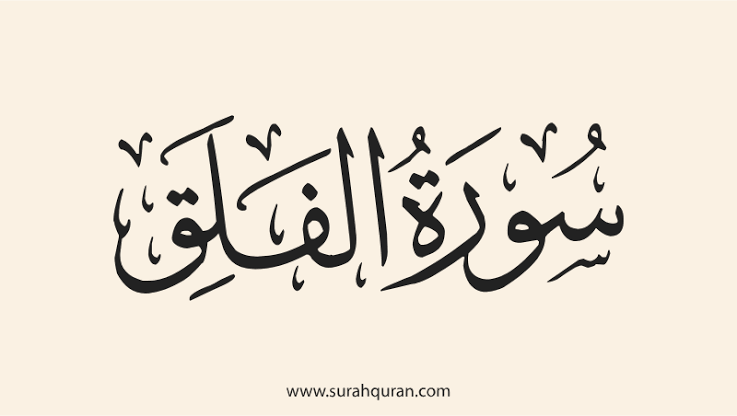 سُورَةُ الْفَلَقِ
www.surahquran.com